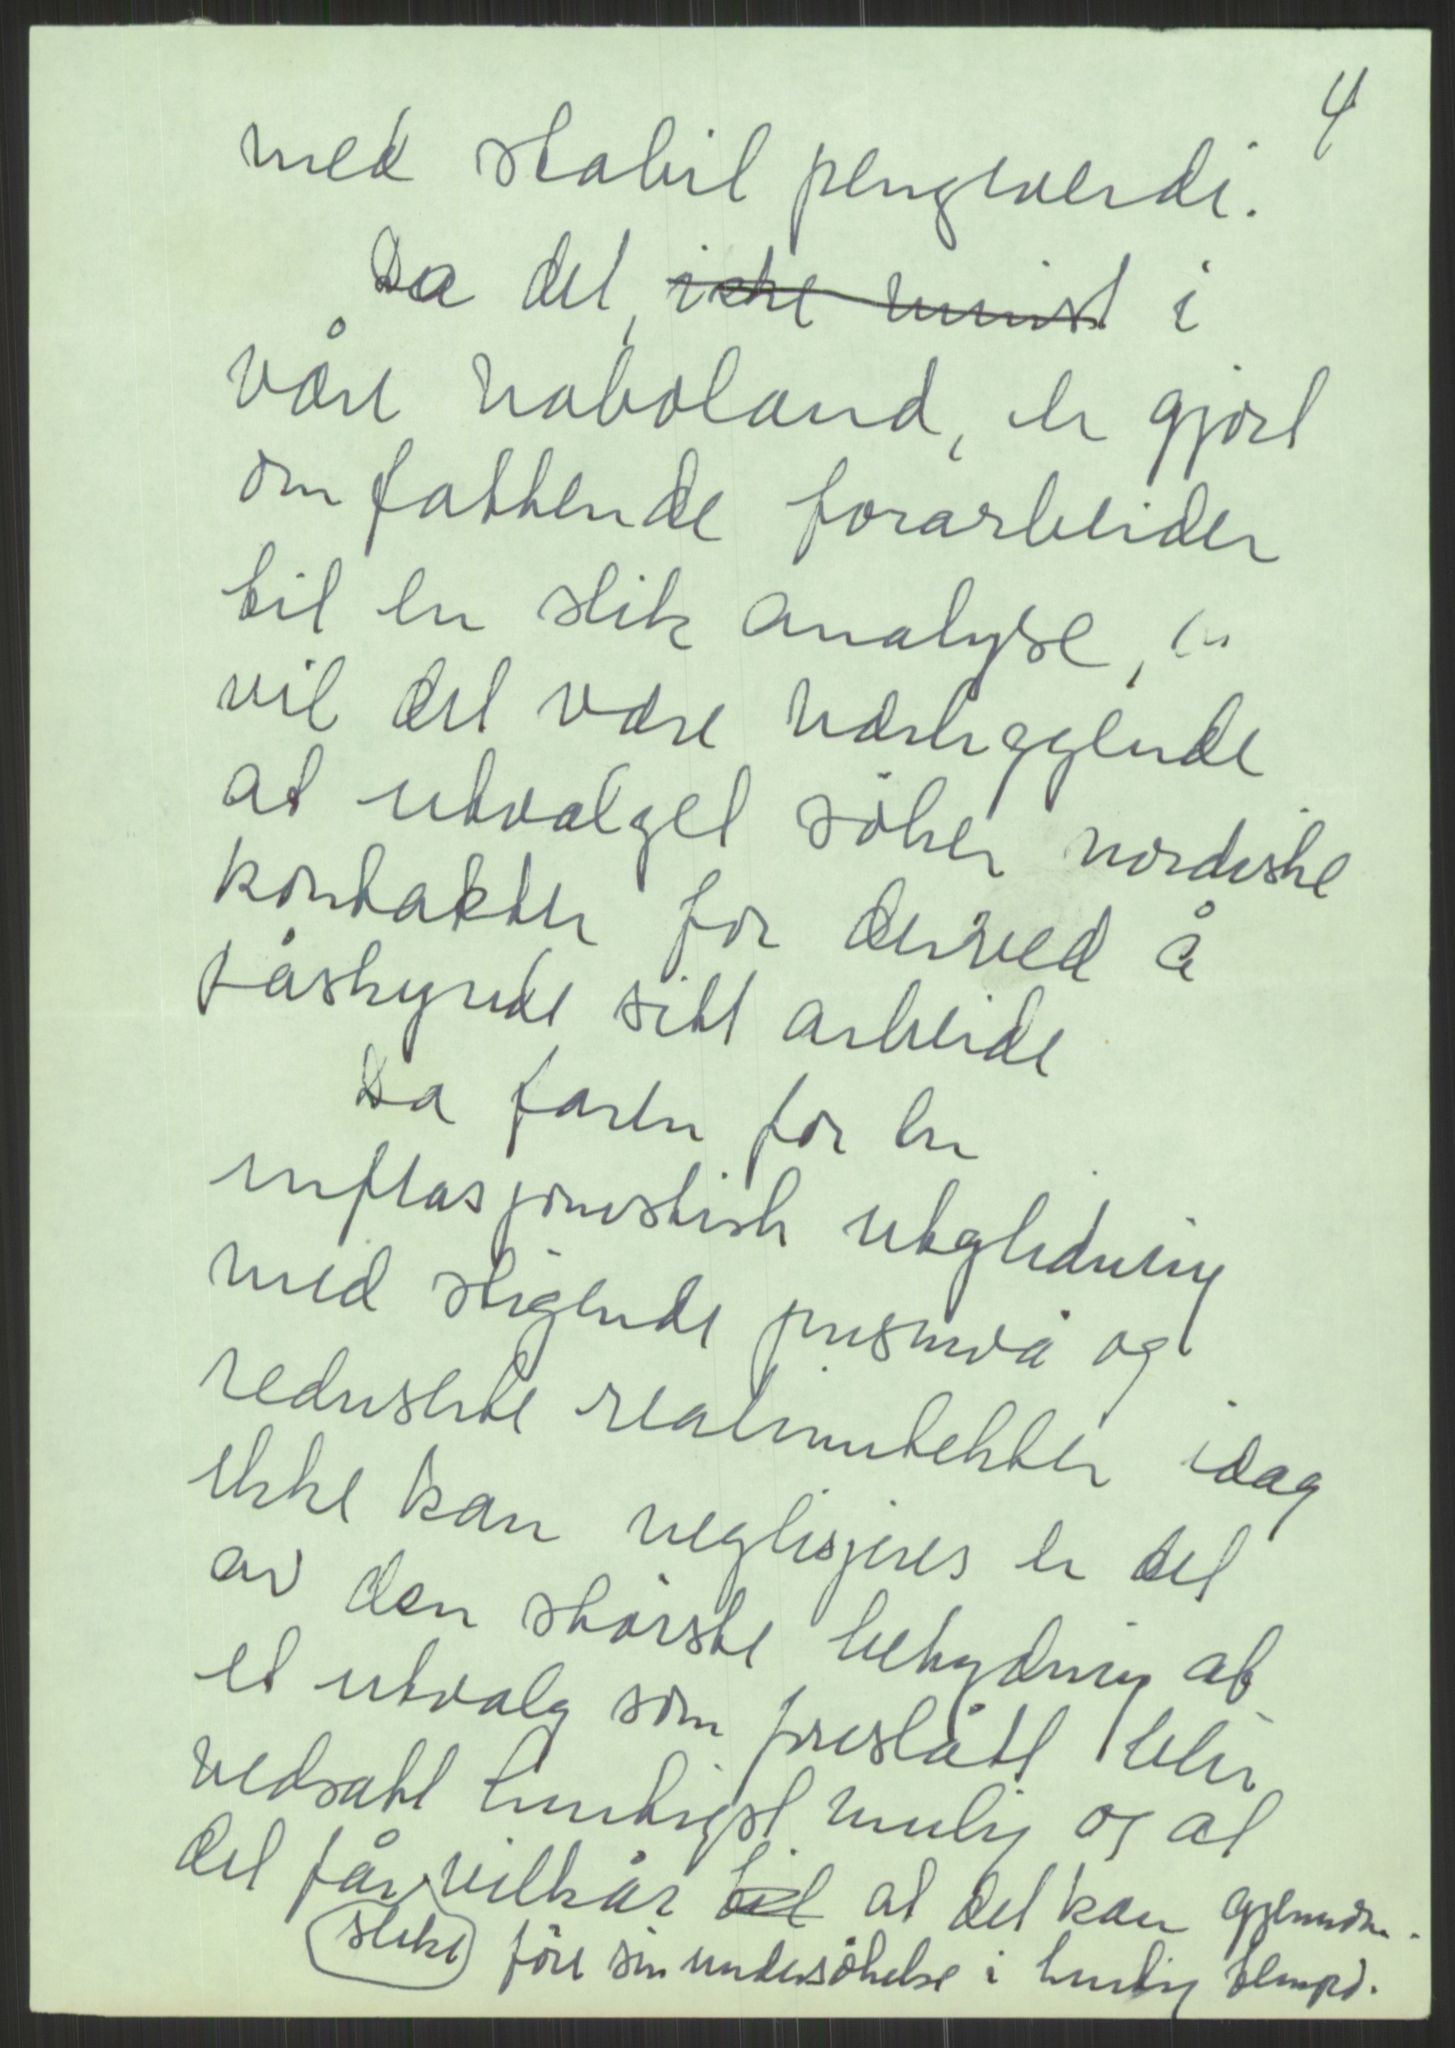 4
med stabil pengeverdi.
Da det, ikke minst i
våre naboland, er gjort
omfattende forarbeider
til en slik analyse,
vil det være nærliggende
at utvalget söker nordiske
kontakter for derved å
påskynde sitt arbeide
Da faren for en
inflasjonistisk utglidning
med stigende prisnivå og
reduserte realinntekter idag
ikke kan neglisjeres er det
av den største betydning at
et utvalg som foreslått blir
nedsatt hurtigst mulig og at
det får vilkår til at det kan gjennom-
slike före sin undersökelse i hurtig tempo.